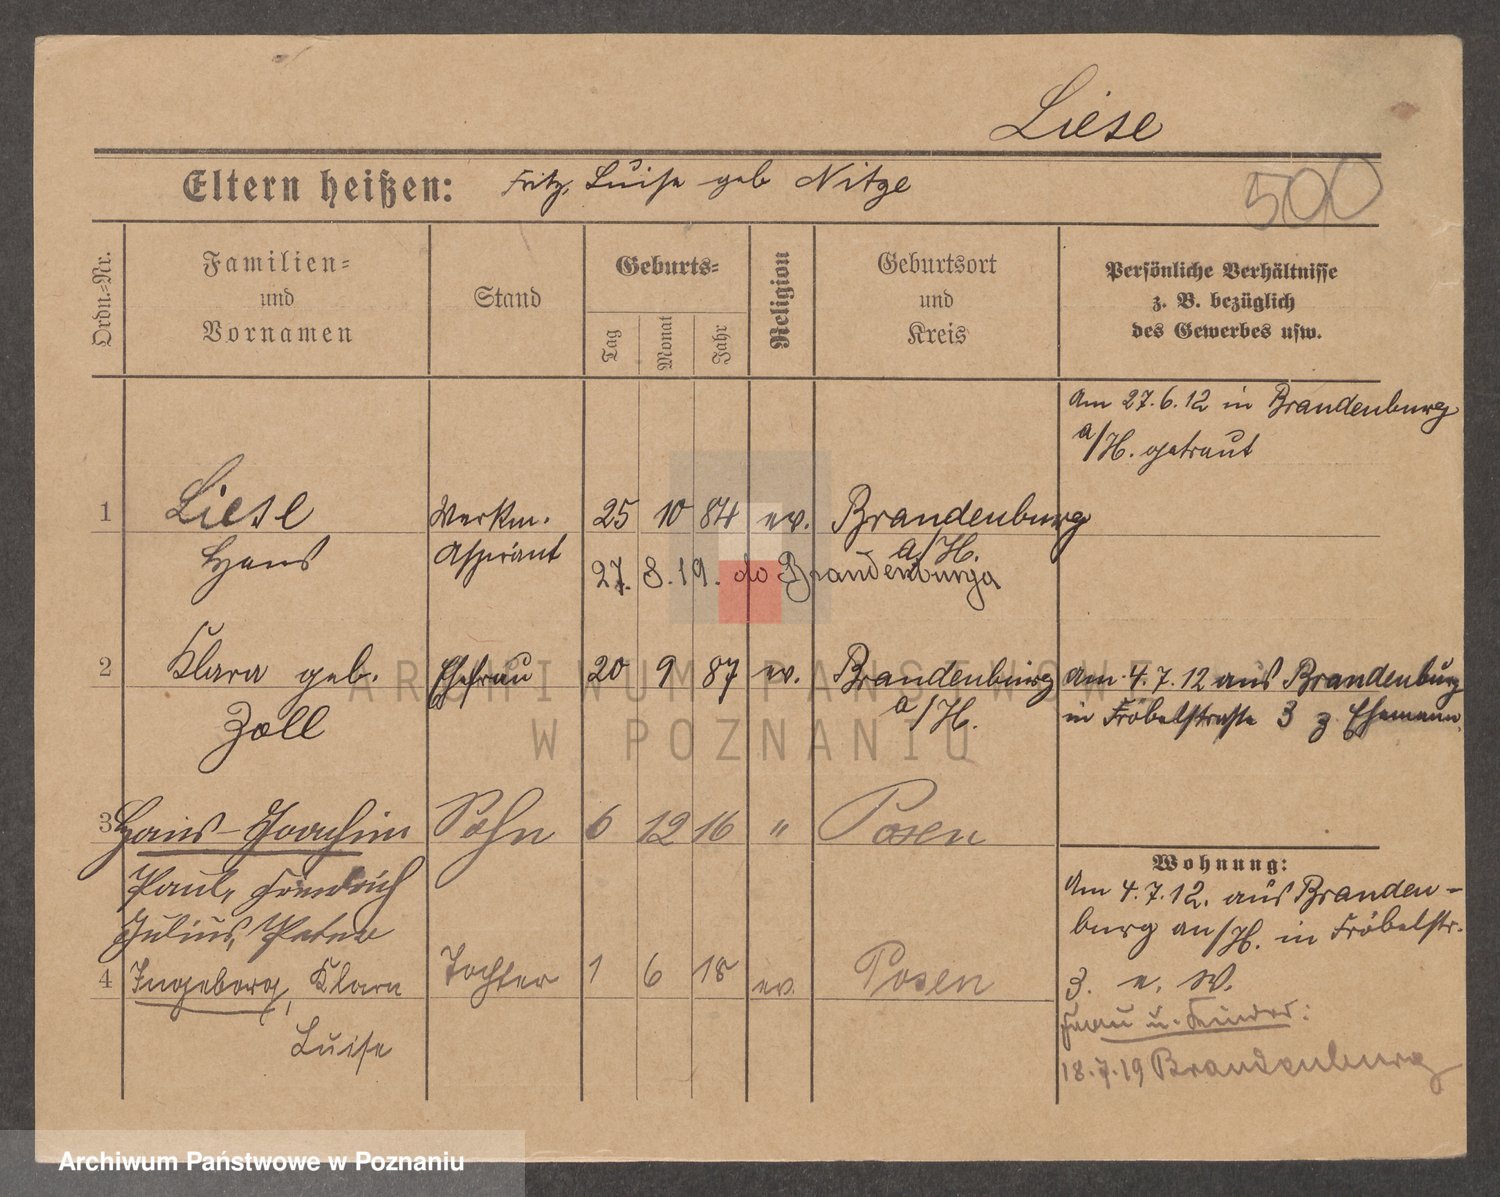 Liese
Eltern heißen: Fritz, Luise geb Nitze
500
Ordn.-Nr.
Familien-
und
Vornamen
Stand
Geburts-
Tag
Monat
Jahr
Religion
Geburtsort
und
Kreis
Persönliche Verhältnisse
z. B. bezüglich
des Gewerbes usw.
Am 27.6.12 in Brandenburg
a/H. getraut
1 Liese Werkm. 25 10 84 ev. Brandenburg
Hans Aspirant a/H.
27. 8. 19. do Brandenburga
2 Klara geb. Ehefrau 20 9 87 ev. Brandenburg Am 4.7.12 aus Brandenburg
Zoll a/H. in Fröbelstraße 3 z Ehemann.
3 Hans-Joachim Sohn 6 12 16 " Posen
Paul, Friedrich
Julius, Peter
4 Ingeborg, Klara Tochter 1 6 18 ev. Posen
Luise
Wohnung:
Am 4.7.12. aus Branden-
burg an/H. in Fröbelstr.
3. e. W.
Frau u. Kinder:
18.7.19 Brandenburg
ARCHIWUM PAŃSTWOWE
W POZNANIU
Archiwum Państwowe w Poznaniu